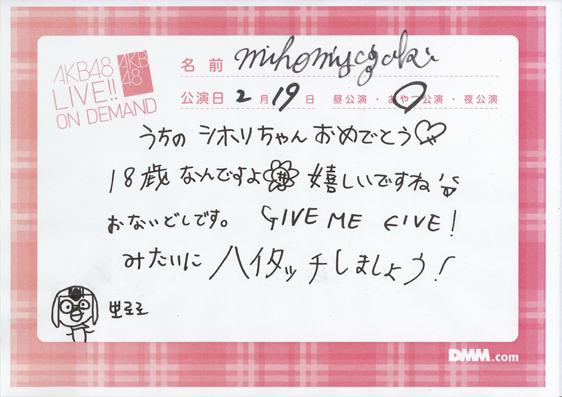 AKB48
LIVE!!
ON DEMAND
AKB
48
名前 miho miyazaki
公演日 2月19日 昼公演・おやつ公演・夜公演
うちの シホリちゃん おめでとう
18歳 なんですよ 嬉しいですね
おないどしです。 GIVE ME FIVE!
みたいに ハイタッチしましょう!
뽀로로
DMM.com